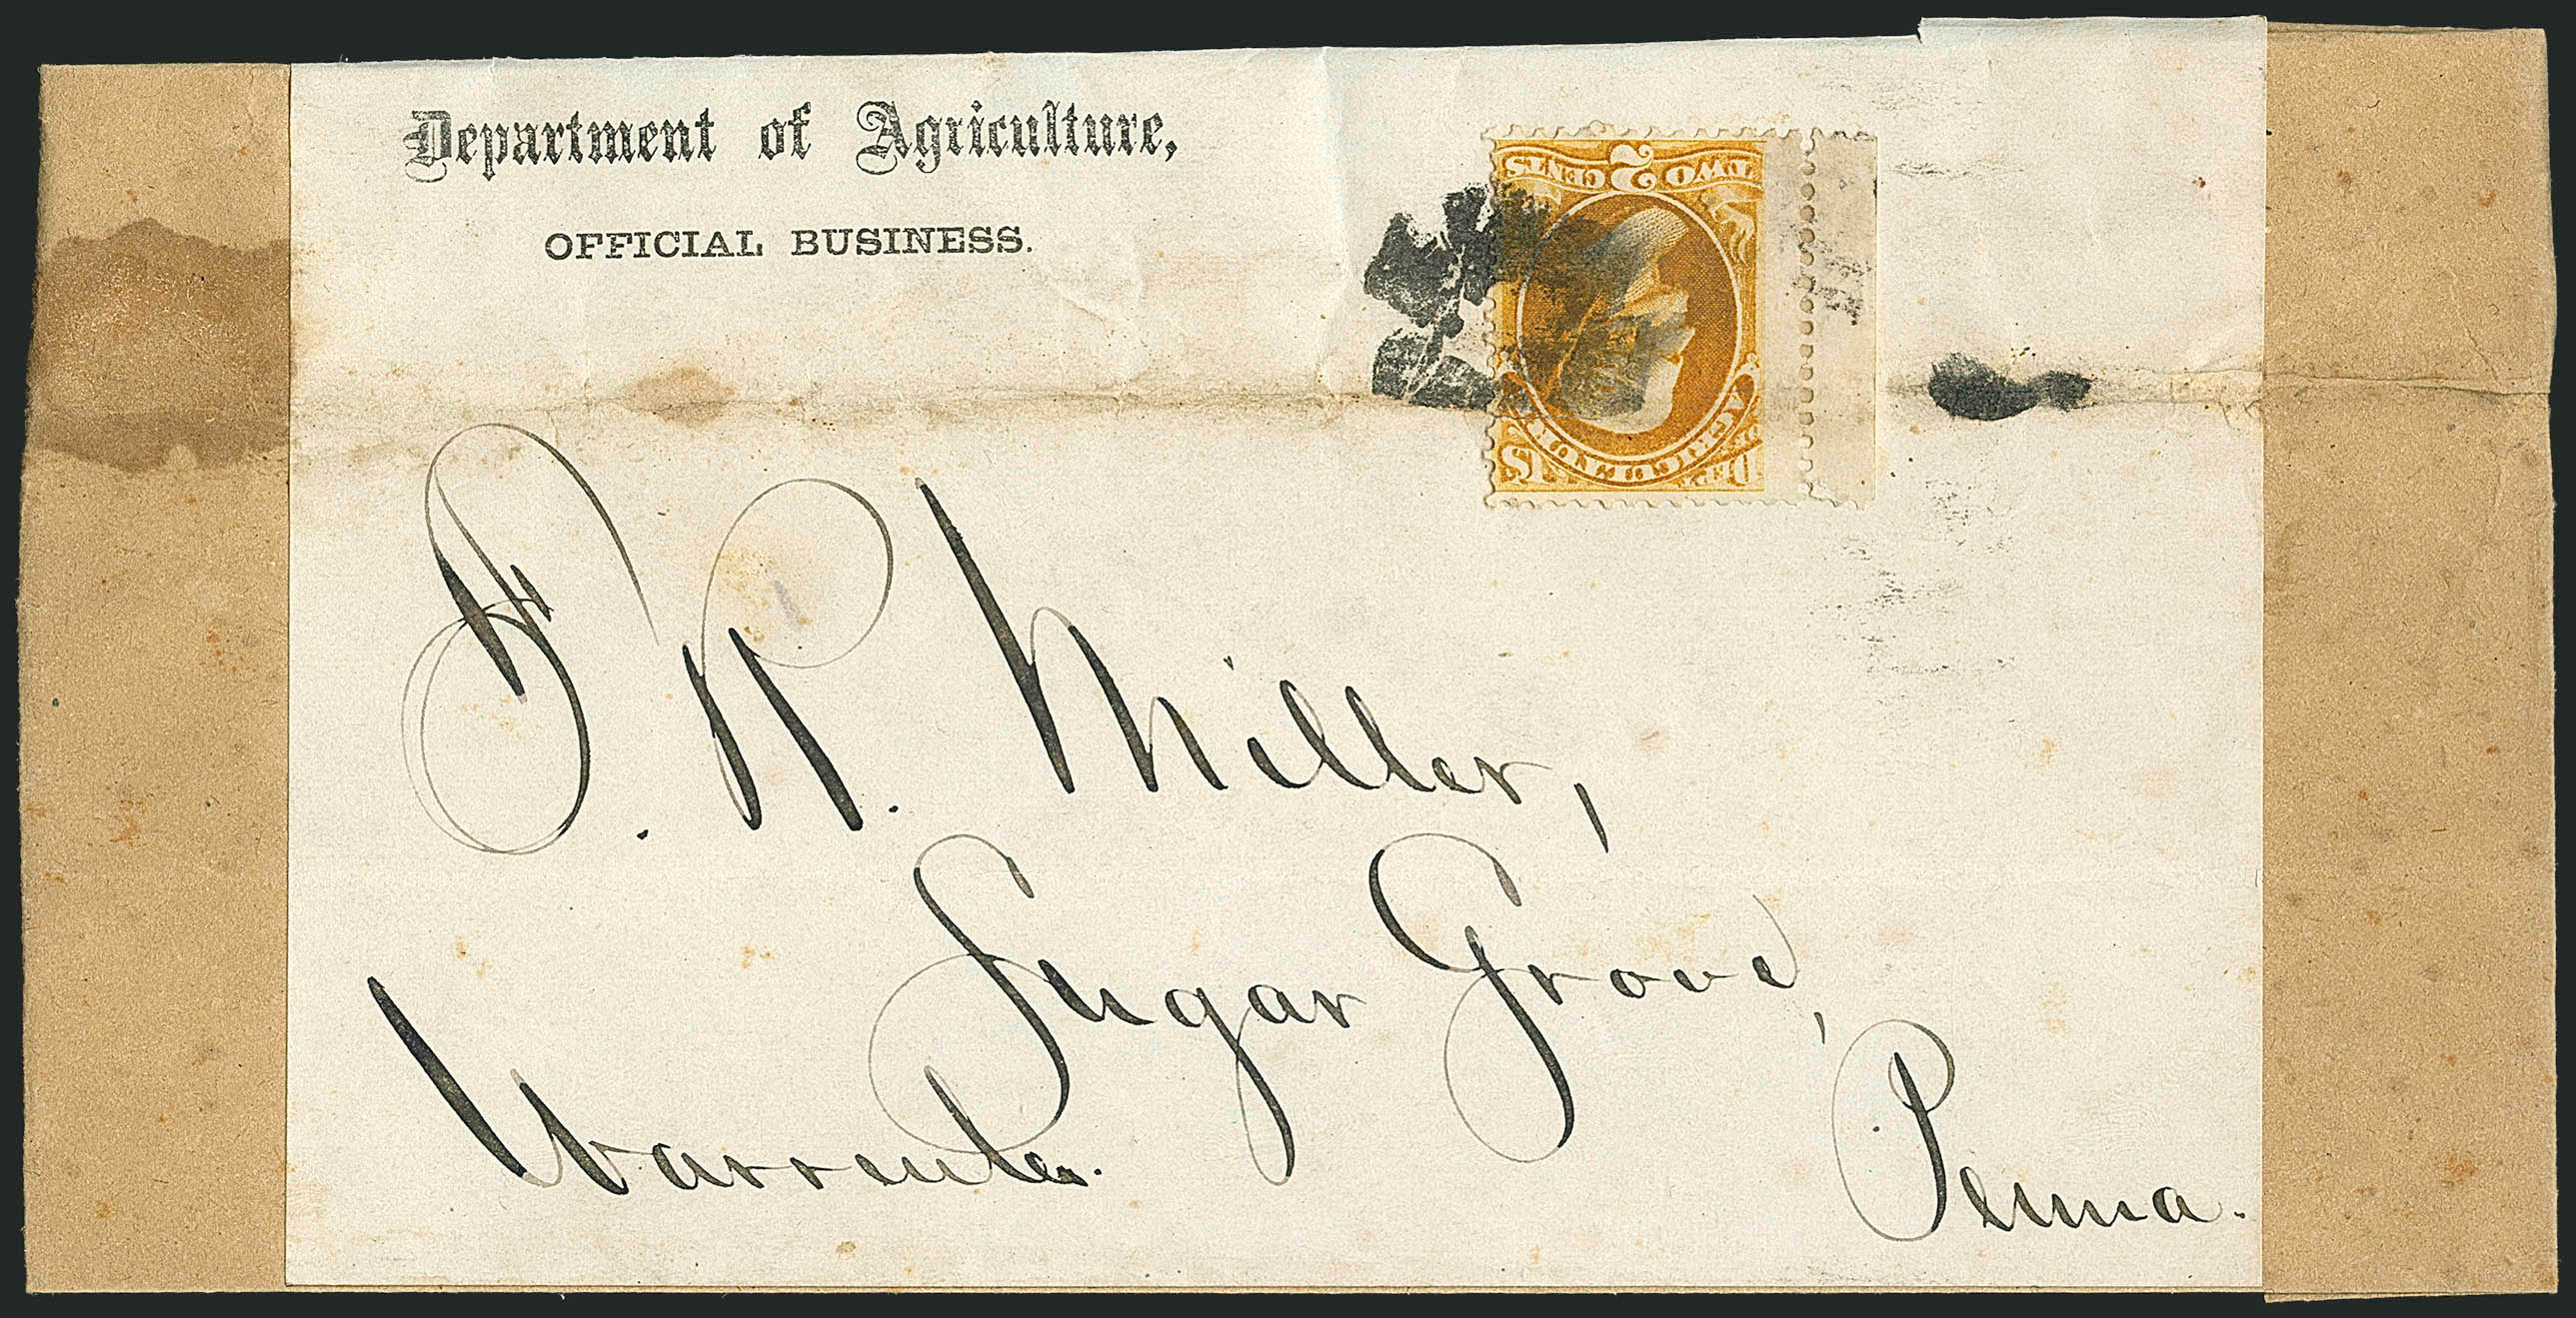 Department of Agriculture,
OFFICIAL BUSINESS.
TWO 2 CENTS
AGRICULTURE
DEPT.
Miller,
Sugar Grove,
Warren Co.
Penna.